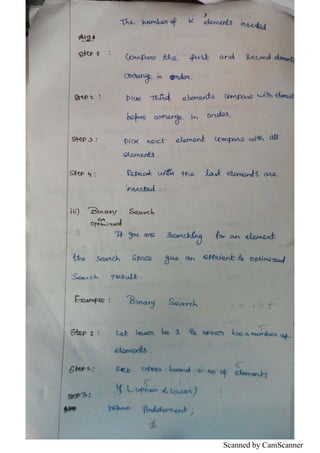 The number of K elements inserted
Algo
Step 1 : Compare the first and second elements
arrange in order.
Step 2 : Pick Third elements compare with element
before arrange in order.
Step 3 : Pick next element compare with all
elements.
Step 4 : Repeat until the last elements are
inserted.
iii) Binary Search
on
optimized
If you are searching for an element
the search space give an efficient & optimized
Search result.
Example : Binary Search
Step 1 : Let lower be 1 & upper be number of
elements.
Step 2 : Set upper bound = no of elements
Step 3 : If (upper < lower)
return
1
Scanned by CamScanner